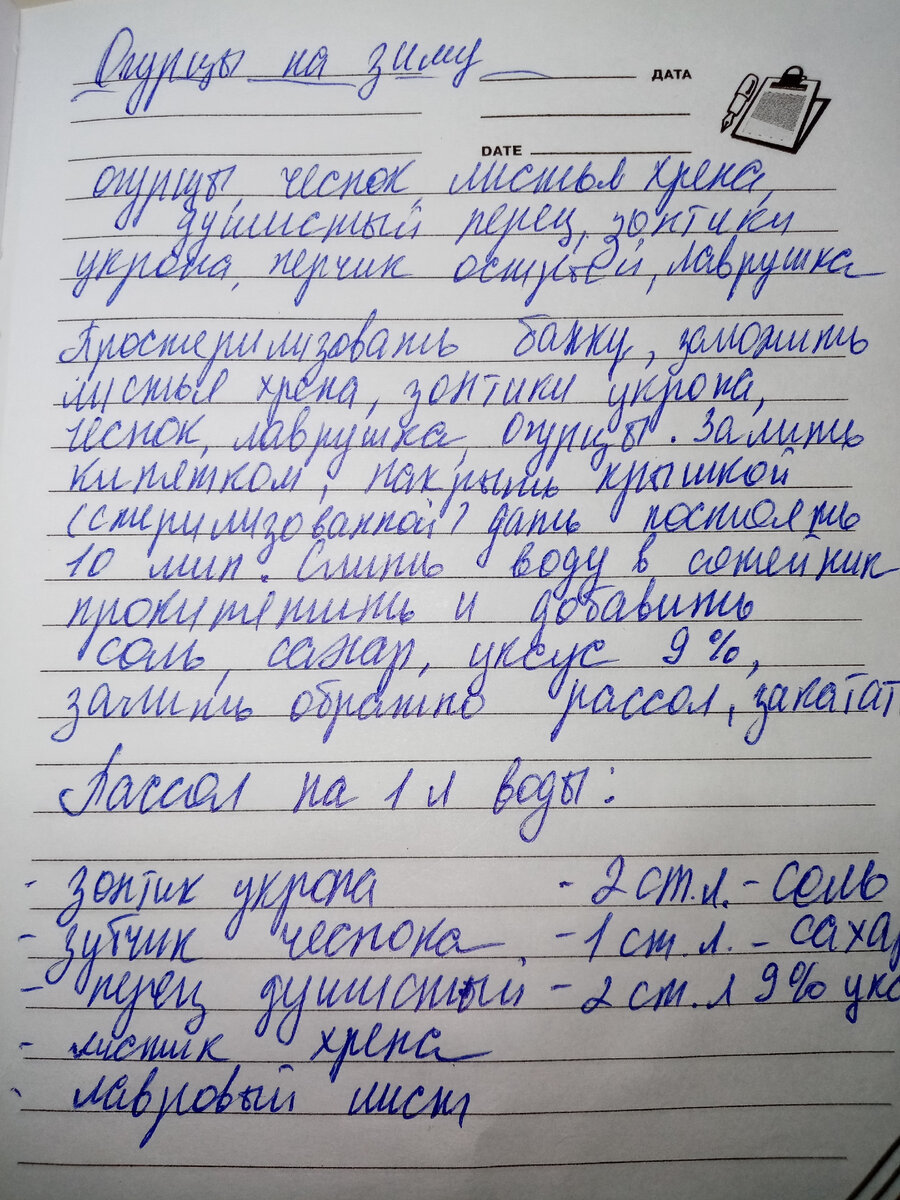 Огурцы на зиму
ДАТА
DATE
огурцы, чеснок, листья хрена,
душистый перец, зонтики
укропа, перчик острый, лаврушка
Простерилизовать банку, заложить
листья хрена, зонтики укропа,
чеснок, лаврушка, огурцы. Залить
кипятком, накрыть крышкой
(стерилизованной) дать постоять
10 мин. Слить воду в сотейник
прокипятить и добавить
соль, сахар, уксус 9%,
залить обратно рассол, закатат
Рассол на 1 л воды:
- зонтик укропа - 2 ст.л. - соль
- зубчик чеснока - 1 ст.л. - саха
- перец душистый - 2 ст.л 9% укс
- листик хрена
- лавровый лист